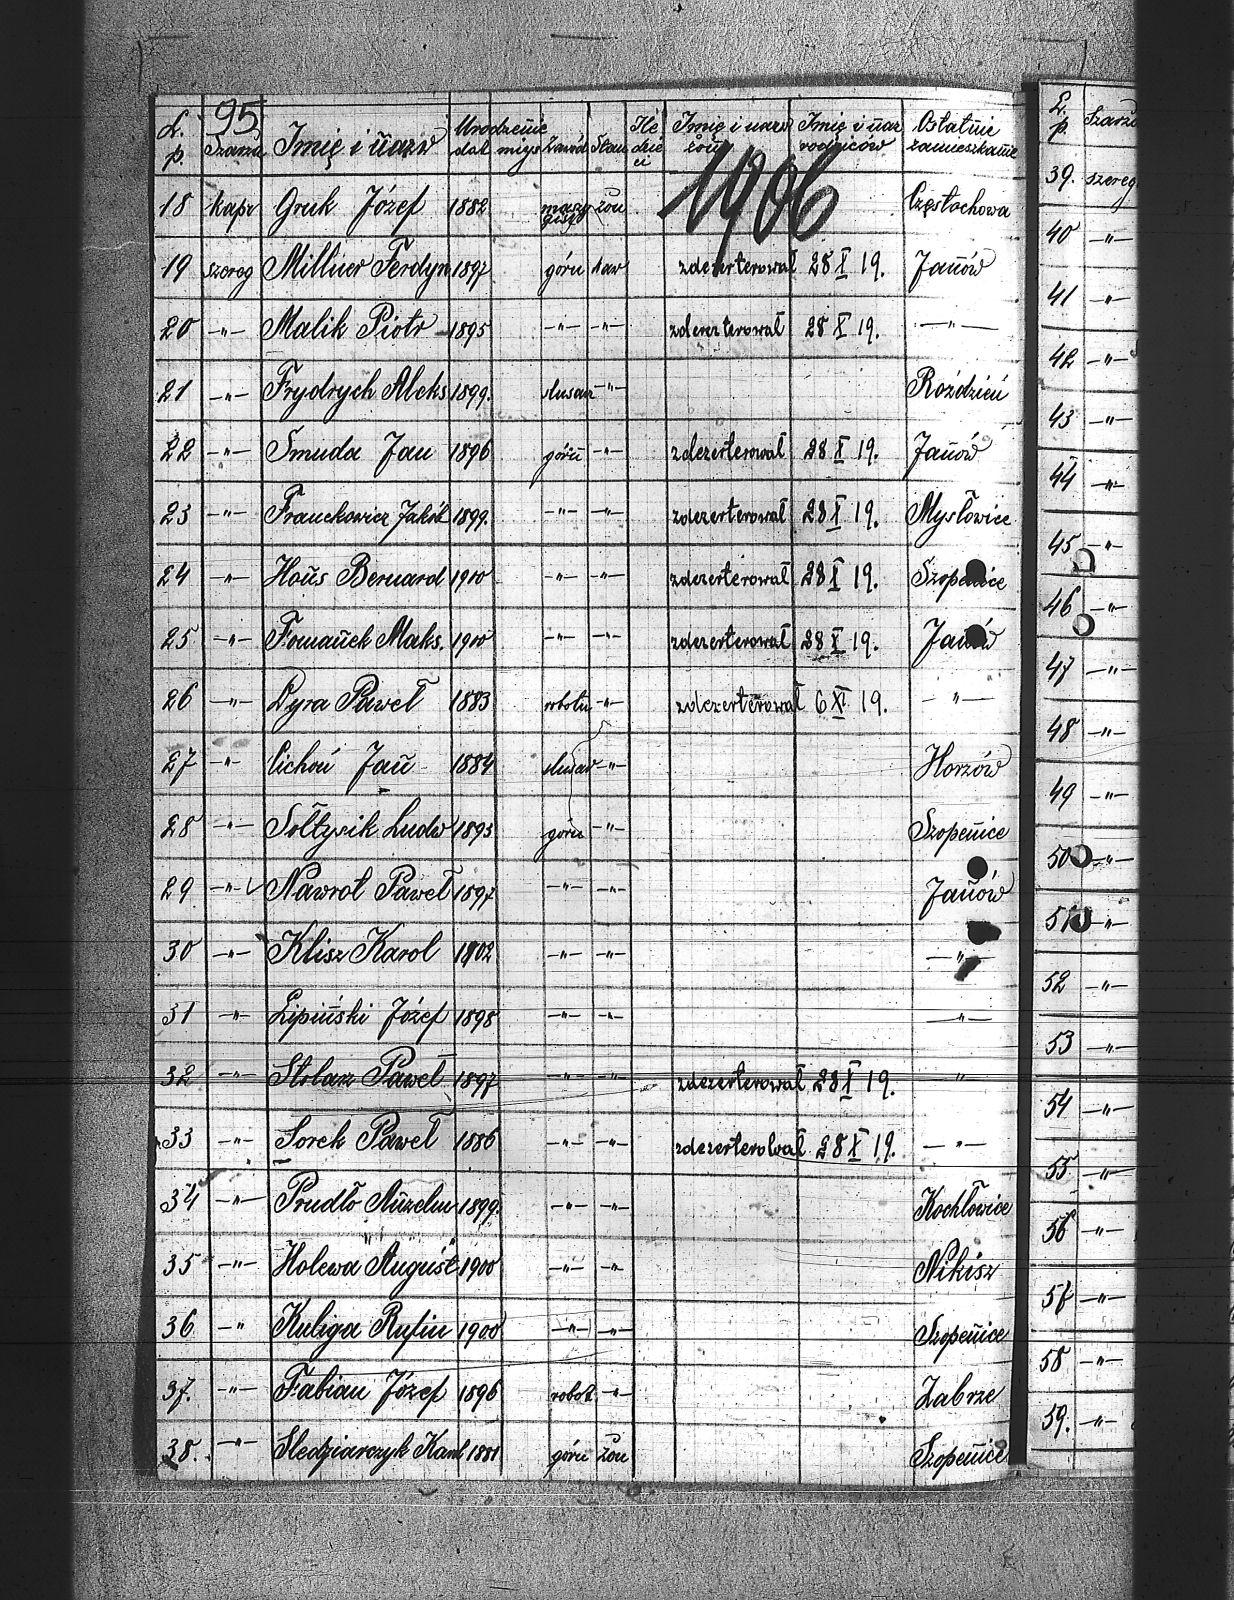 95
L. p. Szarża Imię i nazw Urodzenie dat miejs Zawód Stan Ile dzieci Imię i nazw żony Imię i naz rodziców Ostatnie zamieszkanie
1906
18 kapr Gruk Józef 1882 żon Częstochowa
19 szereg Milliner Ferdyn 1897 górn kaw zdezerterował 28 X 19. Janów
20 -"- Malik Piotr 1895 -"- -"- zdezerterował 28 X 19. -"-
21 -"- Frydrych Aleks 1899. slusar -"- Roździeń
22 -"- Smuda Jan 1896 górn -"- zdezerterował 28 X 19. Janów
23 -"- Franckowicz Jakób 1899. -"- -"- zdezerterował 28 X 19. Mysłowice
24 -"- Hons Bernard 1900 -"- -"- zdezerterował 28 X 19. Szopenice
25 -"- Fomanek Maks. 1900 -"- -"- zdezerterował 28 X 19. Janów
26 -"- Dyra Paweł 1883 robotn -"- zdezerterował 6 XI 19. -"-
27 -"- Cichoń Jan 1884 slusar -"- Horzów
28 -"- Sołtysik Ludw 1895 górn -"- Szopenice
29 -"- Nawrot Paweł 1897 -"- -"- Janów
30 -"- Klisz Karol 1902 -"- -"- -"-
31 -"- Lipiński Józef 1898 -"- -"- -"-
32 -"- Stolarz Paweł 1897 -"- -"- zdezerterował 28 X 19. -"-
33 -"- Sorek Paweł 1886 -"- -"- zdezerterował 28 X 19. -"-
34 -"- Prudło Anzelm 1899. -"- -"- Kochłowice
35 -"- Holewa August 1900 -"- -"- Nikisz
36 -"- Kuliga Rufin 1900 -"- -"- Szopenice
37. -"- Fabian Józef 1896 robot -"- Zabrze
38. -"- Sledziarczyk Karol 1881 górn żon Szopenice
L. p. Szarż
39. szereg
40 -"-
41 -"-
42 -"-
43 -"-
44 -"-
45 -"-
46 -"-
47 -"-
48 -"-
49 -"-
50 -"-
51 -"-
52 -"-
53 -"-
54 -"-
55 -"-
56 -"-
57 -"-
58 -"-
59. -"-